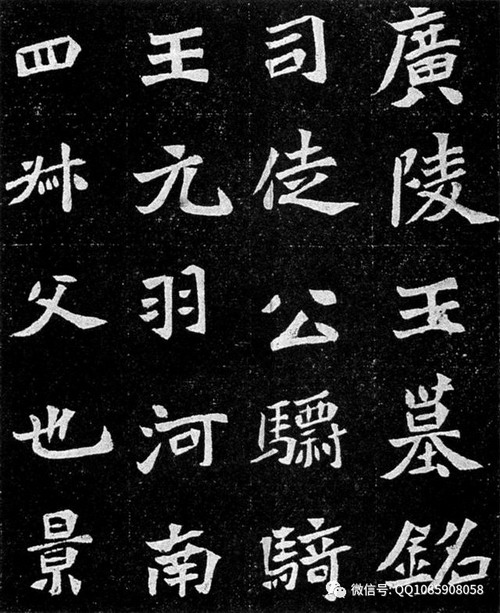 廣陵王墓銘
司徒公驃騎
王元羽河南
四叔父也景
微信号: QQ1085908058